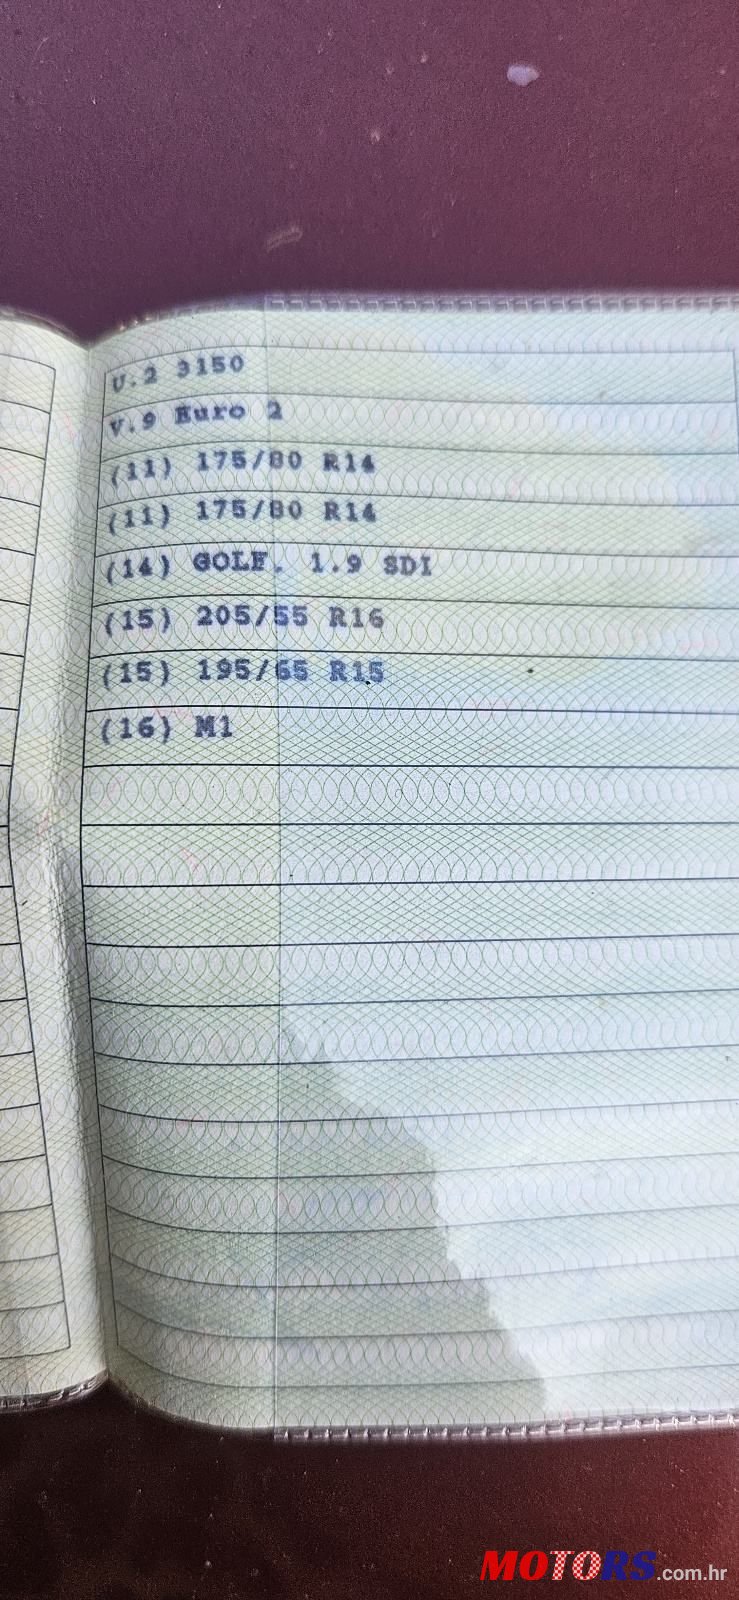 U.2 3150
V.9 Euro 2
(11) 175/80 R14
(11) 175/80 R14
(14) GOLF. 1.9 SDI
(15) 205/55 R16
(15) 195/65 R15
(16) M1
MOTORS.com.hr